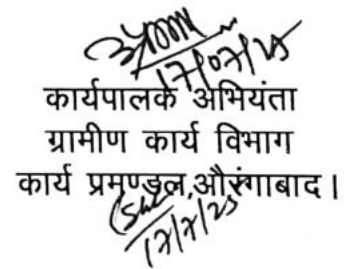 17/07/25
कार्यपालक अभियंता
ग्रामीण कार्य विभाग
कार्य प्रमण्डल,औरंगाबाद।
17/7/25